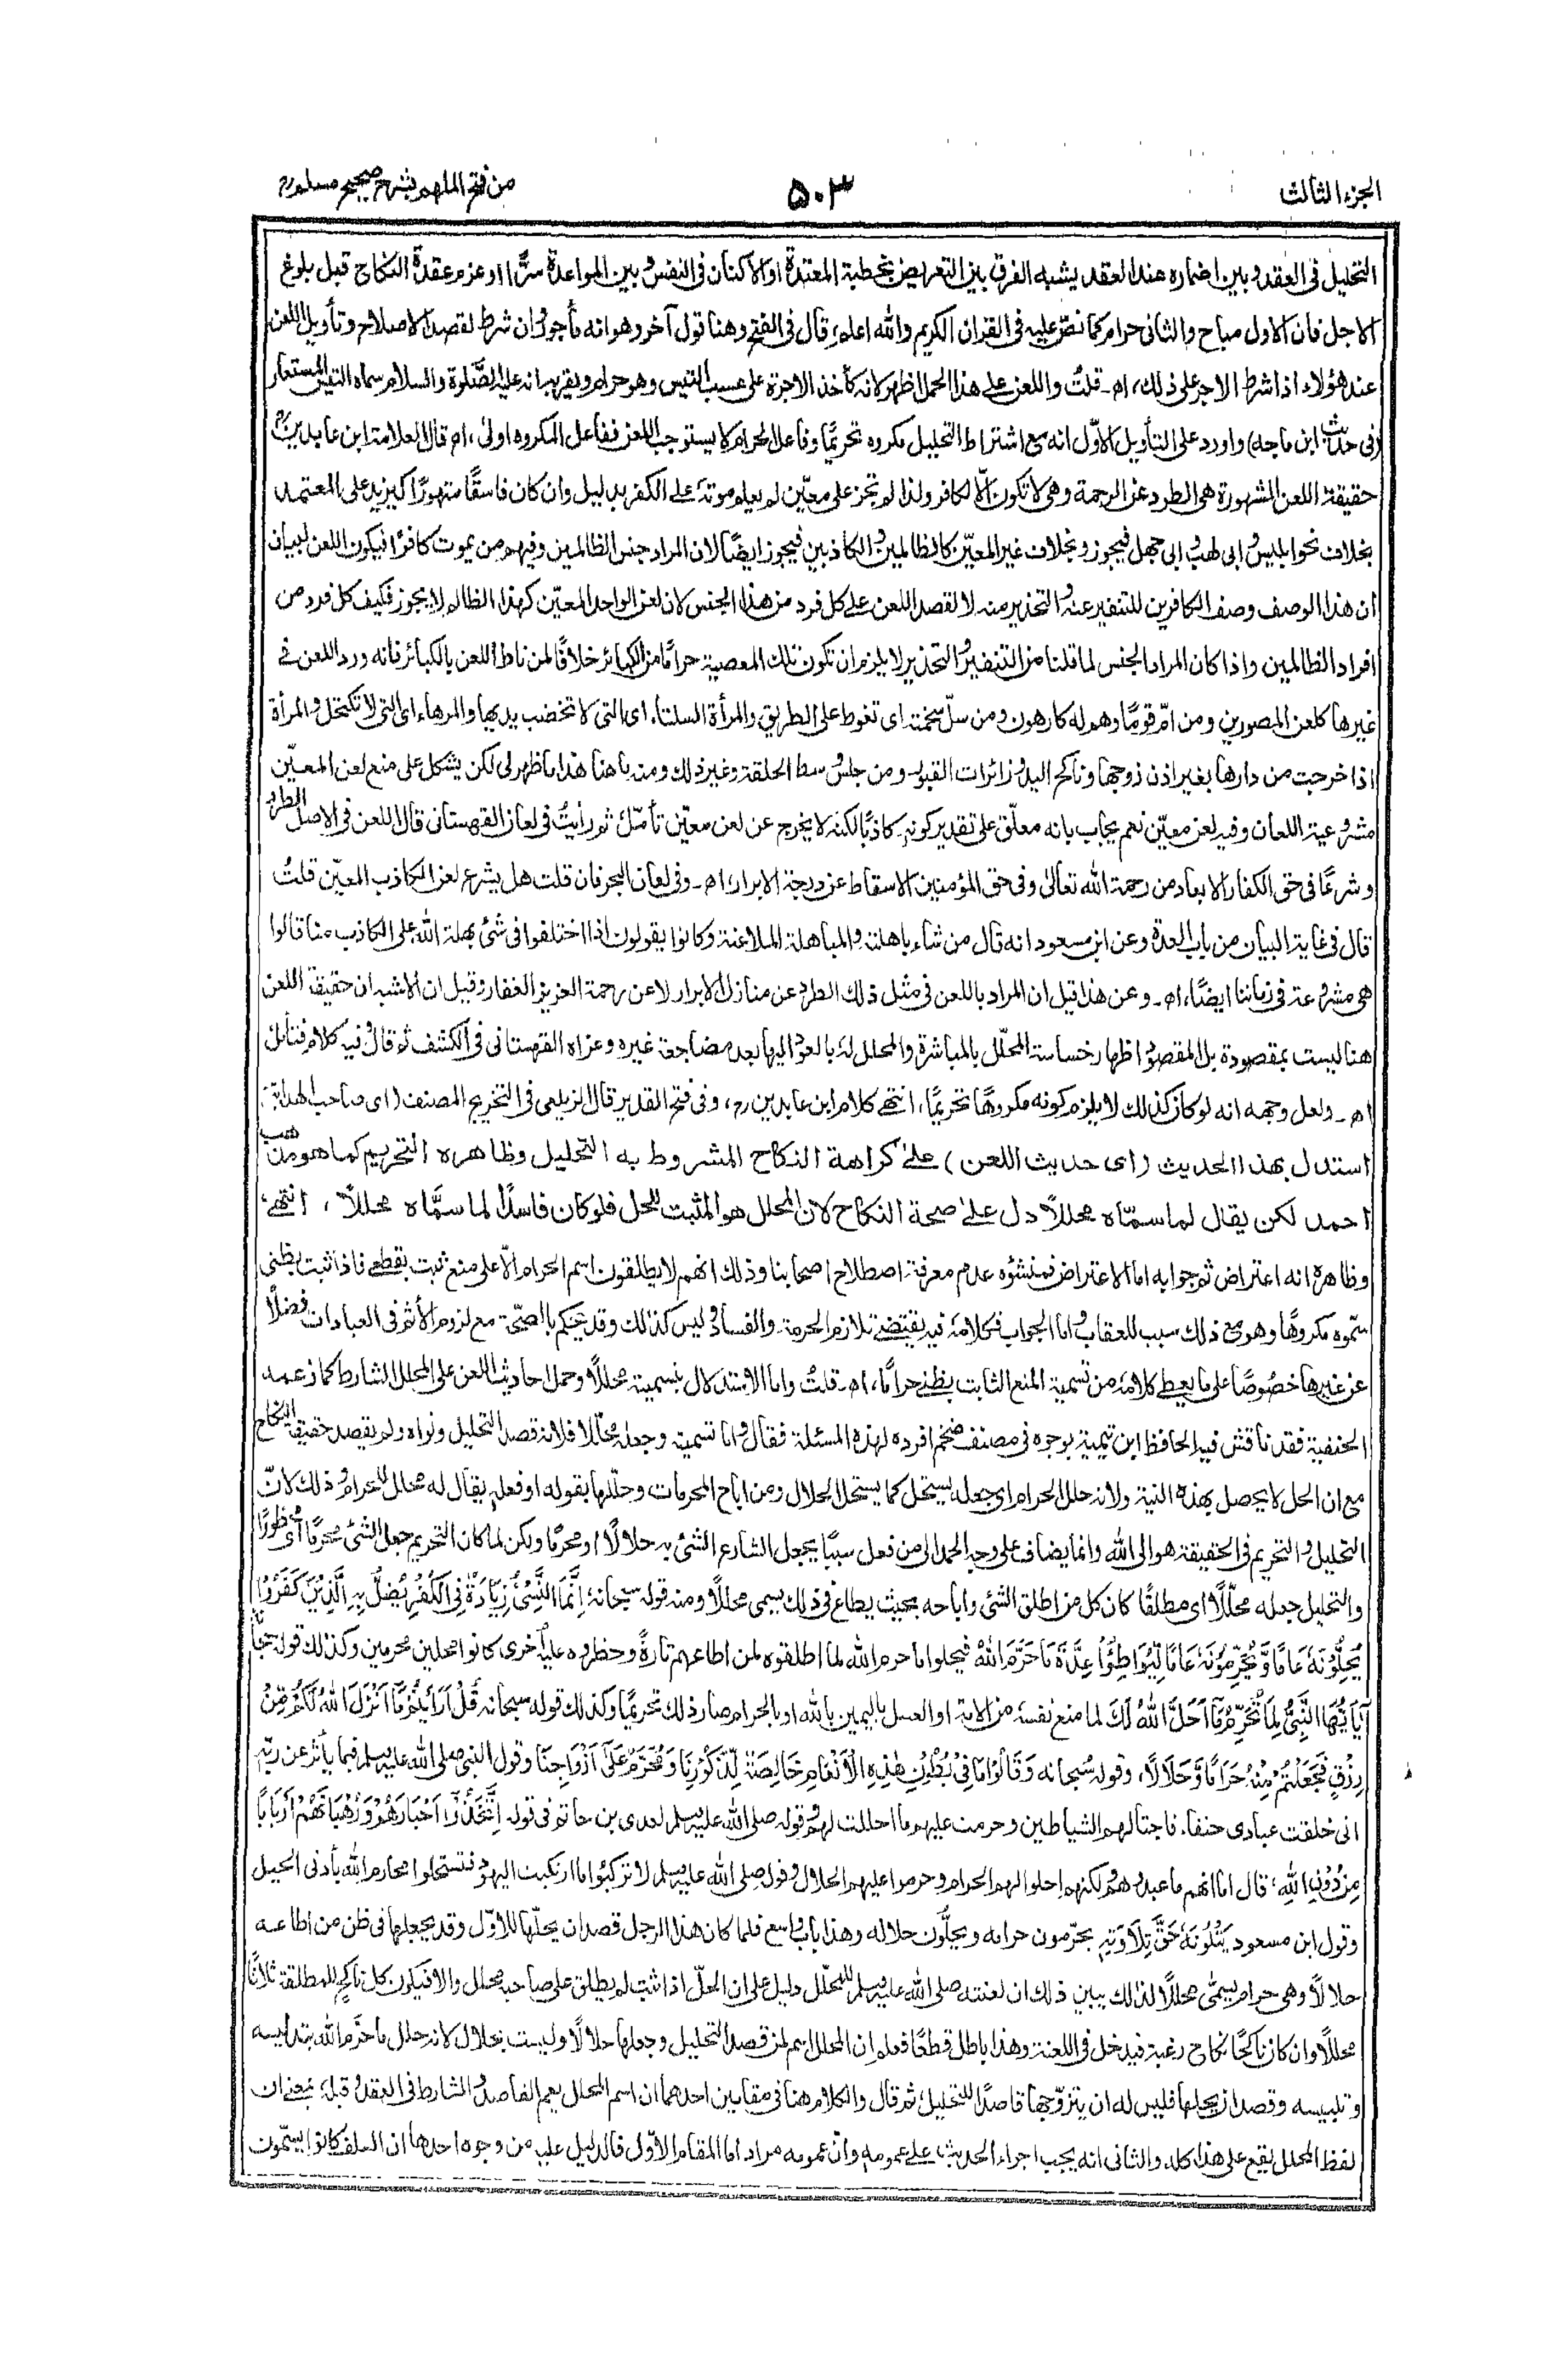 الجزء الثالث
٥٠٣
من فتح الملهم بشرح صحيح مسلم
التحليل فى العقد و بين اضماره عند العقد يشبه الفرق بين التعريض بخطبة المعتدة او الاكنان فى النفس و بين المواعدة سرًّا او عزم عقدة النكاح قبل بلوغ
الاجل فان الاول مباح والثانى حرام كما نصّ عليه فى القرآن الكريم والله اعلم، قال فى الفتح وهنا قول آخر وهو انه مأجور وان شرط لقصد الاصلاح وتأويل اللعن
عند هؤلاء اذا شرط الاجر على ذلك، اه ـ قلتُ واللعن على هذا الحمل اظهر لانه كأخذ الاجرة على عسب التيس وهو حرام ويقربه انه عليه الصّلوة والسلام سماه التيس المستعار
(فى حديث ابن ماجه) واورد على التأويل الاوّل انه مع اشتراط التحليل مكروه تحريمًا وفاعل الحرام لا يستوجب اللعن ففاعل المكروه اولىٰ، اه قال العلامة ابن عابدينؒ
حقيقة اللعن المشهورة هى الطرد عن الرحمة وهى لا تكون الّا لكافر ولذا لم تجز على معيّن لم يعلم موته على الكفر بدليل وان كان فاسقًا متهورًا كيزيد على المعتمد
بخلاف نحو ابليس و ابى لهب و ابى جهل فيجوز و بخلاف غير المعيّن كالظالمين و الكاذبين فيجوز ايضًا لان المراد جنس الظالمين وفيهم من يموت كافرًا فيكون اللعن لبيان
ان هذا الوصف وصف الكافرين للتنفير عنه و التحذير منه لا لقصد اللعن على كل فرد من هذا الجنس لان لعن الواحد المعيّن كهذا الظالم لا يجوز فكيف كل فرد من
افراد الظالمين واذا كان المراد الجنس لما قلنا من التنفير و التحذير لا يلزم ان تكون تلك المعصية حرامًا من الكبائر خلافًا لمن ناط اللعن بالكبائر فانه ورد اللعن فى
غيرها كلعن المصورين ومن امّ قومًا وهم له كارهون ومن سلّ سخيمته اى تغوط على الطريق والمرأة السلتاء اى التى لا تخضب يديها والمرهاء اى التى لا تكتحل و المرأة
اذا خرجت من دارها بغير اذن زوجها وناكح اليد و زائرات القبور ومن جلس وسط الحلقة وغير ذلك ومنه ما هنا هذا ما ظهر لى لكن يشكل على منع لعن المعيّن
مشروعية اللعان وفيه لعن معيّن نعم يجاب بانه معلّق على تقدير كونه كاذبًا لكنه لا يخرج عن لعن معيّن تأمّل ثم رأيتُ فى لعان القهستانى قال اللعن فى الاصل الطرد
و شرعًا فى حق الكفار الابعاد من رحمة الله تعالىٰ وفى حق المؤمنين الاسقاط عن درجة الابرار، اه ـ وفى لعان البحر فان قلت هل يشرع لعن الكاذب المعيّن قلتُ
قال فى غاية البيان من باب العدة وعن ابن مسعود انه قال من شاء باهلته والمباهلة الملاعنة وكانوا يقولون اذا اختلفوا فى شئ بهلة الله على الكاذب منا قالوا
هى مشروعة فى زماننا ايضًا، اه ـ وعن هذا قيل ان المراد باللعن فى مثل ذلك الطرد عن منازل الابرار لا عن رحمة العزيز الغفار وقيل ان الاشبه ان حقيقة اللعن
هنا ليست بمقصودة بل المقصود اظهار خساسة المحلّل بالمباشرة والمحلل له بالعود اليها بعد مضاجعة غيره وعزاه القهستانى فى الكشف ثم قال وفيه كلام فتأمل
اه ـ ولعل وجهه انه لو كان كذلك لا يلزم كونه مكروهًا تحريمًا، انتهى كلام ابن عابدين رح، وفى فتح القدير قال الزيلعى فى التخريج المصنف (اى صاحب الهداية)
استدل بهذا الحديث (اى حديث اللعن) على كراهة النكاح المشروط به التحليل وظاهره التحريم كما هو مذهب
احمد لكن يقال لما سمّاه محللًا دل على صحة النكاح لان المحلل هو المثبت للحل فلو كان فاسدًا لما سمّاه محللًا، انتهى
وظاهره انه اعتراض ثم جوابه اما الاعتراض فمنشؤه عدم معرفة اصطلاح اصحابنا وذلك انهم لا يطلقون اسم الحرام الّا على منع ثبت بقطعى فاذا ثبت بظنى
سمّوه مكروهًا وهو مع ذلك سبب للعقاب و اما الجواب فكلامه فيه يقتضى تلازم الحرمة والفساد و ليس كذلك وقد يحكم بالصحّة مع لزوم الأثم فى العبادات فضلًا
عن غيرها خصُوصًا على ما يعطى كلامه من تسمية المنع الثابت بظنى حرامًا، اه ـ قلتُ واما الاستدلال بتسميته محللًا وحمل احاديث اللعن على المحلل الشارط كما زعمه
الحنفية فقد ناقش فيه الحافظ ابن تيمية بوجوه فى مصنف ضخم افرده لهذه المسئلة فقال و اما تسميته وجعله محلّلا فلانه قصد التحليل ونواه ولم يقصد حقيقة النكاح
مع ان الحل لا يحصل بهذه النية ولانه حلل الحرام اى جعله يستحل كما يستحل الحلال ومن اباح المحرمات وحلّلها بقوله او فعله يقال له محلل للحرام و ذلك لانّ
التحليل و التحريم فى الحقيقة هو الى الله وانما يضاف على وجه الحمد الى من فعل سببًا يجعل الشارع الشئ به حلالًا او محرمًا ولكن لما كان التحريم جعل الشئ محرمًا اى محظورًا
والتحليل جعله محلّلًا اى مطلقًا كان كل من اطلق الشئ واباحه بحيث يطاع فى ذلك يسمى محللًا ومنه قوله سبحانه اِنَّمَا النَّسِىْٓءُ زِيَادَةٌ فِى الْكُفْرِ يُضَلُّ بِهِ الَّذِيْنَ كَفَرُوْا
يُحِلُّوْنَهٗ عَامًا وَّ يُحَرِّمُوْنَهٗ عَامًا لِّيُوَاطِئُوْا عِدَّةَ مَا حَرَّمَ اللّٰهُ فيحلوا ما حرم الله لما اطلقوه لمن اطاعهم تارةً وحظروه عليه اخرى كانوا محلين محرمين وكذلك قوله سبحانه
يٰٓاَيُّهَا النَّبِىُّ لِمَ تُحَرِّمُ مَآ اَحَلَّ اللّٰهُ لَكَ لما منع نفسه من الامة او العسل باليمين بالله او بالحرام صار ذلك تحريمًا وكذلك قوله سبحانه قُلْ اَرَاَيْتُمْ مَّآ اَنْزَلَ اللّٰهُ لَكُمْ مِّنْ
رِزْقٍ فَجَعَلْتُمْ مِّنْهُ حَرَامًا وَّحَلَالًا، وقوله سُبحانه وَقَالُوْا مَا فِىْ بُطُوْنِ هٰذِهِ الْاَنْعَامِ خَالِصَةٌ لِّذُكُوْرِنَا وَ مُحَرَّمٌ عَلٰٓى اَزْوَاجِنَا وقول النبى صلى الله عليه وسلم فيما يأثر عن ربّه
انى خلقت عبادى حنفاء فاجتالهم الشياطين وحرمت عليهم ما احللت لهم و قوله صلى الله عليه وسلم لعدى بن حاتم فى قوله اِتَّخَذُوْٓا اَحْبَارَهُمْ وَ رُهْبَانَهُمْ اَرْبَابًا
مِّنْ دُوْنِ اللّٰهِ، قال اما انهم ما عبدوهم ولكنهم احلوا لهم الحرام وحرموا عليهم الحلال و قول صلى الله عليه وسلم لا تركبوا ما ارتكبت اليهود فتستحلوا محارم الله بأدنى الحيل
وقول ابن مسعود يَتْلُوْنَهٗ حَقَّ تِلَاوَتِهٖ يحرّمون حرامه ويحلّون حلاله وهذا باب واسع فلما كان هذا الرجل قصد ان يحلّها للاوّل وقد يجعلها فى ظن من اطاعه
حلالًا وهى حرام يسمّى محللًا لذلك يبين ذلك ان لعنته صلى الله عليه وسلم للمحلّل دليل على ان الحلّ اذا ثبت لم يطلق على صاحبه محلل والا فيكون كل ناكح للمطلقة ثلاثًا
محللًا وان كان ناكحًا نكاح رغبة فيدخل فى اللعنة وهذا باطل قطعًا فعلم ان المحلل اسم لمن قصد التحليل وجعلها حلالًا وليست بحلال لانه حلل ما حرّم الله بتدليسه
و تلبيسه وقصد ان يحلها فليس له ان يتزوّجها قاصدًا للتحليل، ثم قال والكلام هنا فى مقامين احدهما ان اسم المحلل يعم القاصد و الشارط فى العقد و قبله، يعنى ان
لفظ المحلل يقع على هذا كله، والثانى انه يجب اجراء الحديث على عمومه وانّ عمومه مراد اما المقام الاوّل فالدليل عليه من وجوه احدها ان السلف كانوا يسمّون